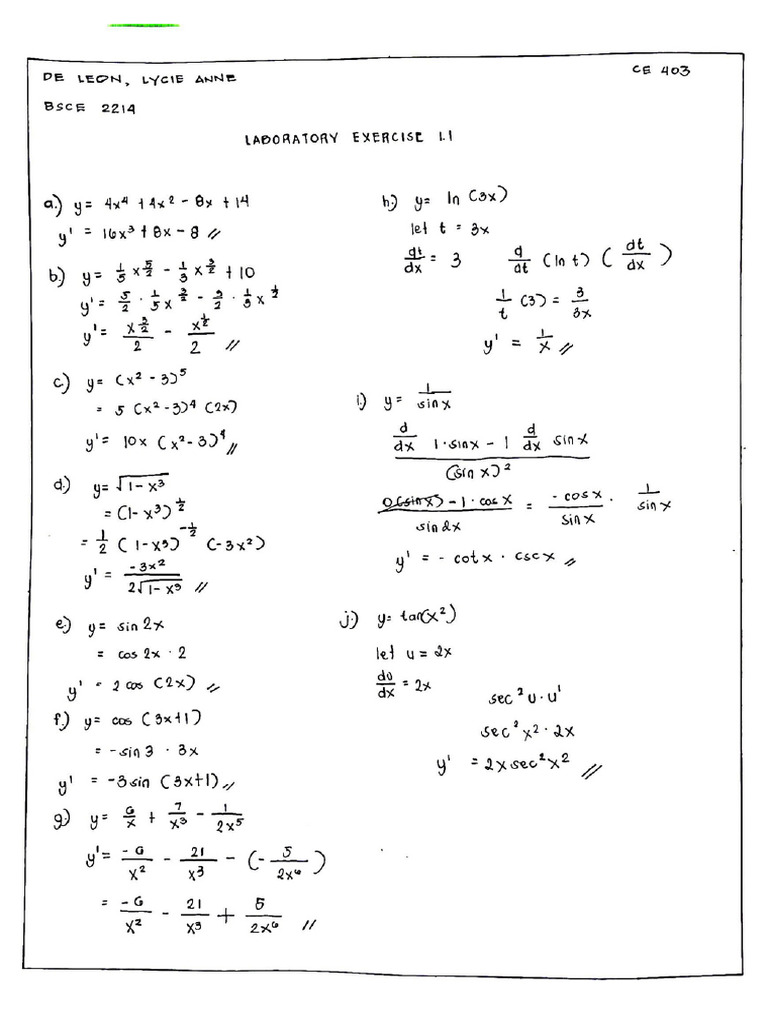 DE LEON, LYCIE ANNE
CE 403
BSCE 2214
LABORATORY EXERCISE 1.1
a.) y = 4x⁴ + 4x² - 8x + 14
y' = 16x³ + 8x - 8 //
b.) y = 1/5 x^(5/2) - 1/3 x^(3/2) + 10
y' = 5/2 · 1/5 x^(3/2) - 3/2 · 1/3 x^(1/2)
y' = x^(3/2)/2 - x^(1/2)/2 //
c.) y = (x² - 3)⁵
= 5 (x² - 3)⁴ (2x)
y' = 10x (x² - 3)⁴ //
d.) y = √(1 - x³)
= (1 - x³)^(1/2)
= 1/2 (1 - x³)^(-1/2) (-3x²)
y' = -3x² / 2√(1 - x³) //
e.) y = sin 2x
= cos 2x · 2
y' = 2 cos (2x) //
f.) y = cos (3x+1)
= -sin 3 · 3x
y' = -3 sin (3x+1) //
g.) y = 6/x + 7/x³ - 1/2x⁵
y' = -6/x² - 21/x³ - (- 5/2x⁶)
= -6/x² - 21/x³ + 5/2x⁶ //
h.) y = ln (3x)
let t = 3x
dt/dx = 3 d/dt (ln t) (dt/dx)
1/t (3) = 3/3x
y' = 1/x //
i.) y = 1/sin x
d/dx 1 · sin x - 1 d/dx sin x / (sin x)²
0(sin x) - 1 · cos x / sin 2x = -cos x / sin x · 1/sin x
y' = - cot x · csc x //
j.) y = tan(x²)
let u = 2x
du/dx = 2x
sec² u · u'
sec² x² · 2x
y' = 2x sec² x² //